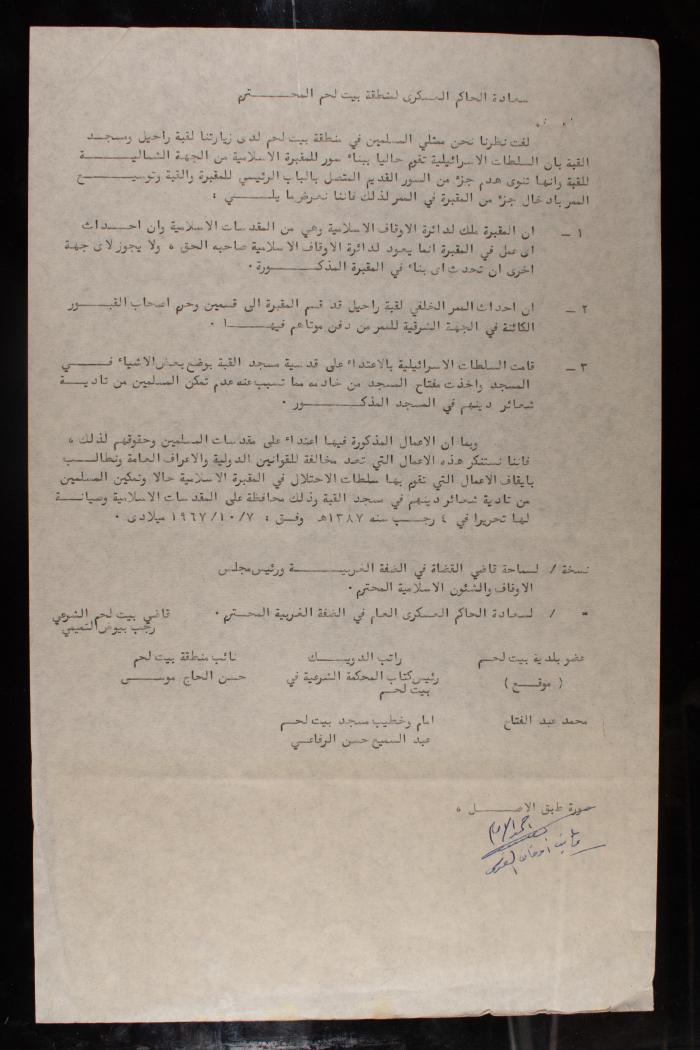 سعادة الحاكم العسكرى لمنطقة بيت لحم المحترم
لفت نظرنا نحن ممثلي المسلمين في منطقة بيت لحم لدى زيارتنا لقبة راحيل ومسجد
القبة بان السلطات الاسرائيلية تقوم حاليا ببناء سور للمقبرة الاسلامية من الجهة الشمالية
للقبة وانها تنوى هدم جزء من السور القديم المتصل بالباب الرئيسي للمقبرة والقبة وتوسيع
الممر بادخال جزء من المقبرة في الممر لذلك فاننا نعرض ما يلي :
١ – ان المقبرة ملك لدائرة الاوقاف الاسلامية وهي من المقدسات الاسلامية وان احداث
اى عمل في المقبرة انما يعود لدائرة الاوقاف الاسلامية صاحبه الحق ، ولا يجوز لاى جهة
اخرى ان تحدث اى بناء في المقبرة المذكورة .
٢ – ان احداث الممر الخلفي لقبة راحيل قد قسم المقبرة الى قسمين وحرم اصحاب القبور
الكائنة في الجهة الشرقية للممر من دفن موتاهم فيها .
٣ – قامت السلطات الاسرائيلية بالاعتداء على قدسية مسجد القبة بوضع بعض الاشياء في
المسجد واخذت مفتاح المسجد من خادمه مما تسبب عنه عدم تمكن المسلمين من تادية
شعائر دينهم في المسجد المذكور .
وبما ان الاعمال المذكورة فيها اعتداء على مقدسات المسلمين وحقوقهم لذلك ،
فاننا نستنكر هذه الاعمال التي تعد مخالفة للقوانين الدولية والاعراف العامة ونطالب
بايقاف الاعمال التي تقوم بها سلطات الاحتلال في المقبرة الاسلامية حالا وتمكين المسلمين
من تادية شعائر دينهم في مسجد القبة وذلك محافظة على المقدسات الاسلامية وصيانة
لها تحريرا في ٤ رجب سنه ١٣٨٧هـ وفق : ١٩٦٧/١٠/٧ ميلادى .
نسخة / لسماحة قاضي القضاة في الضفة الغربية ورئيس مجلس
الاوقاف والشئون الاسلامية المحترم .
= / لسعادة الحاكم العسكرى العام في الضفة الغربية المحترم .
قاضي بيت لحم الشرعي
رجب بيوض التميمي
عضو بلدية بيت لحم راتب الدويك نائب منطقة بيت لحم
( موقع ) رئيس كتاب المحكمة الشرعية في حسن الحاج موسى
بيت لحم
محمد عبد الفتاح امام وخطيب مسجد بيت لحم
عبد السميع حسن الرفاعي
صورة طبق الاصل ،